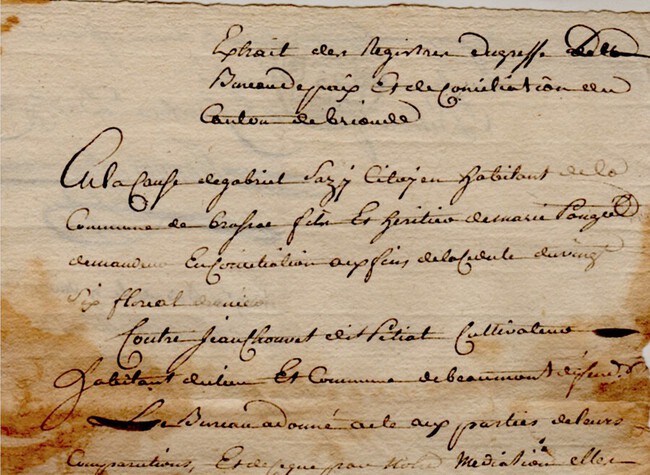 Extrait des Registres du greffe de la
Bureau de paix Et de Conciliation du
Canton de brioude
En la Cause de gabriel Sazy Citoyen habitant de la
Commune de brassac fils Et heritier de marie
demandeur En Conciliation aux fins de la Cedule du vingt
six floreal dernier
Contre Jean Chouvet dit Petiat Cultivateur
habitant du lieu Et Commune de beaumont défend.r
Le Bureau a donné acte aux parties de leurs
Comparutions, Et de ce que par Notre Mediation elles